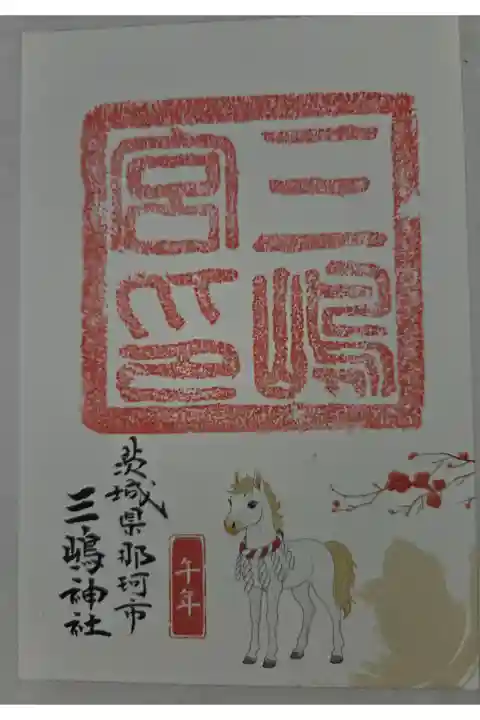 三嶋
宮印
茨城県那珂市
三嶋神社
午年